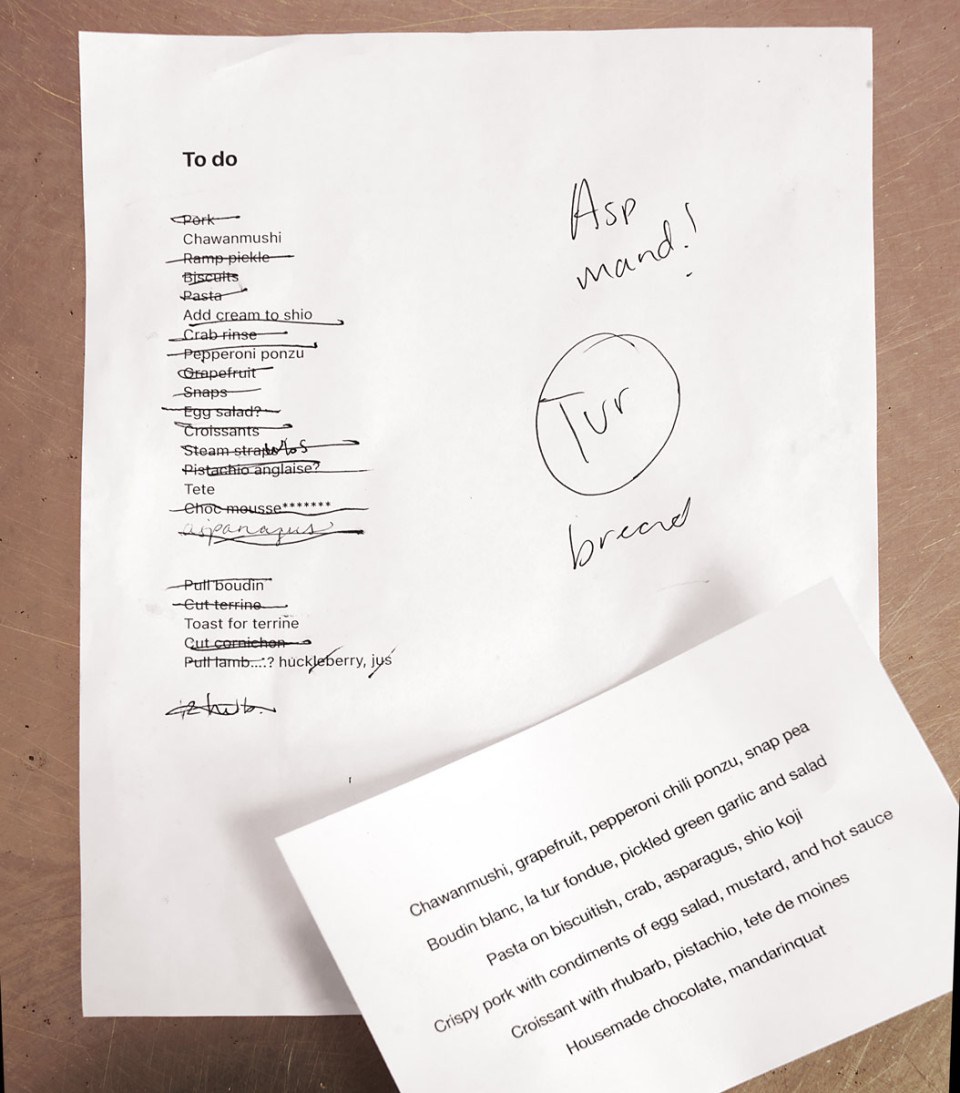 To do
Pork
Chawanmushi
Ramp pickle
Biscuits
Pasta
Add cream to shio
Crab rinse
Pepperoni ponzu
Grapefruit
Snaps
Egg salad?
Croissants
Steam
Pistachio anglaise?
Tete
Choc mousse*******
asparagus
Pull boudin
Cut terrine
Toast for terrine
Cut cornichon
Pull lamb....? huckleberry, jus
Asp
mand!
Tur
bread
Chawanmushi, grapefruit, pepperoni chili ponzu, snap pea
Boudin blanc, la tur fondue, pickled green garlic and salad
Pasta on biscuitish, crab, asparagus, shio koji
Crispy pork with condiments of egg salad, mustard, and hot sauce
Croissant with rhubarb, pistachio, tete de moines
Housemade chocolate, mandarinquat